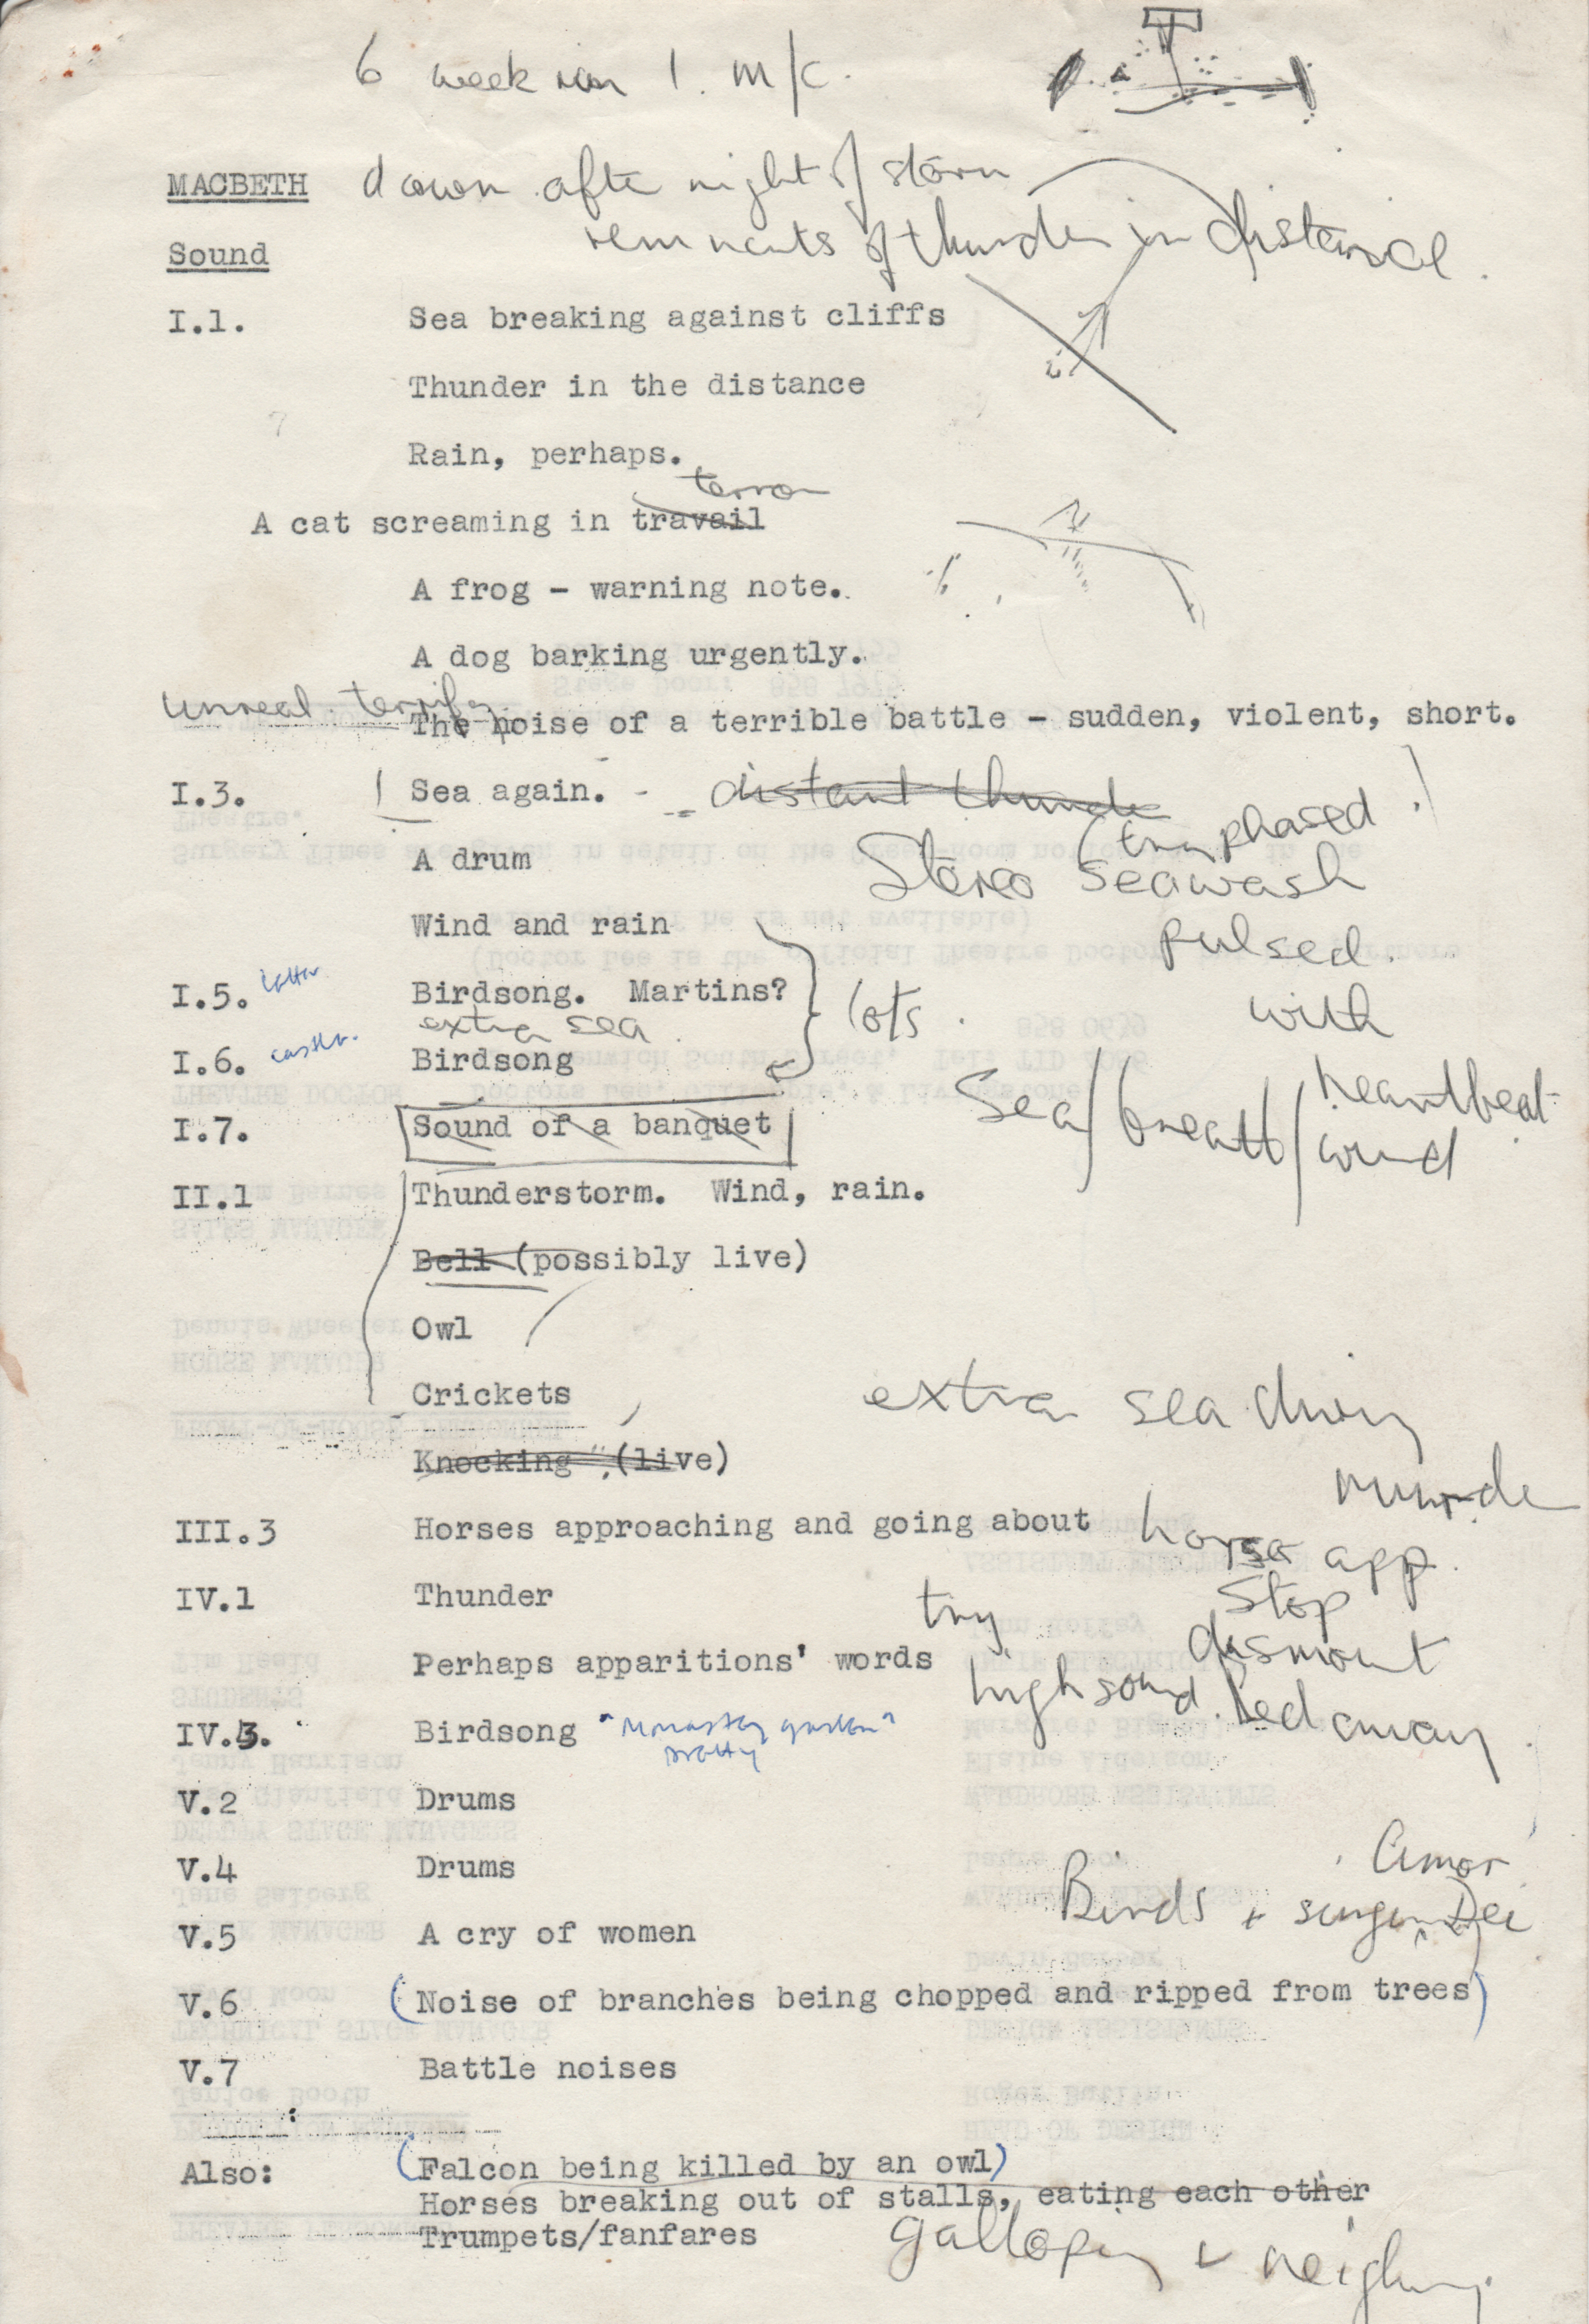 6 week run 1. m/c.
MACBETH dawn after night of storm
remnants of thunder in distance.
Sound
I.1. Sea breaking against cliffs
Thunder in the distance
Rain, perhaps.
terror
A cat screaming in travail
A frog - warning note.
A dog barking urgently.
unreal. terrify
The noise of a terrible battle - sudden, violent, short.
I.3. Sea again. distant thunder
(try phased
A drum
Stereo seawash
Wind and rain
pulsed.
I.5. letter Birdsong. Martins?
lots.
with
extra sea.
I.6. castle. Birdsong
heartbeat
Sea/breath/wind
I.7. Sound of a banquet
II.1 Thunderstorm. Wind, rain.
Bell (possibly live)
Owl
Crickets
extra sea during
murder
Knocking (live)
III.3 Horses approaching and going about
horses app.
Stop
dismount
led away.
IV.1 Thunder
try
high sound.
Perhaps apparitions' words
IV.3. Birdsong "Monastery garden"
pretty
V.2 Drums
V.4 Drums
Amor
Birds + singing Dei
V.5 A cry of women
V.6 (Noise of branches being chopped and ripped from trees)
V.7 Battle noises
Also: (Falcon being killed by an owl)
Horses breaking out of stalls, eating each other
Trumpets/fanfares
galloping + neighing.